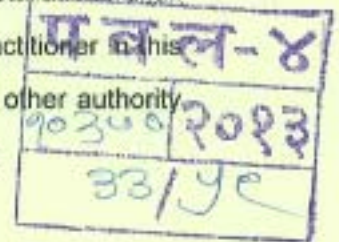 actitioner in this
प ब ल - ४
other authority
१०३५० २०१३
३३/५८